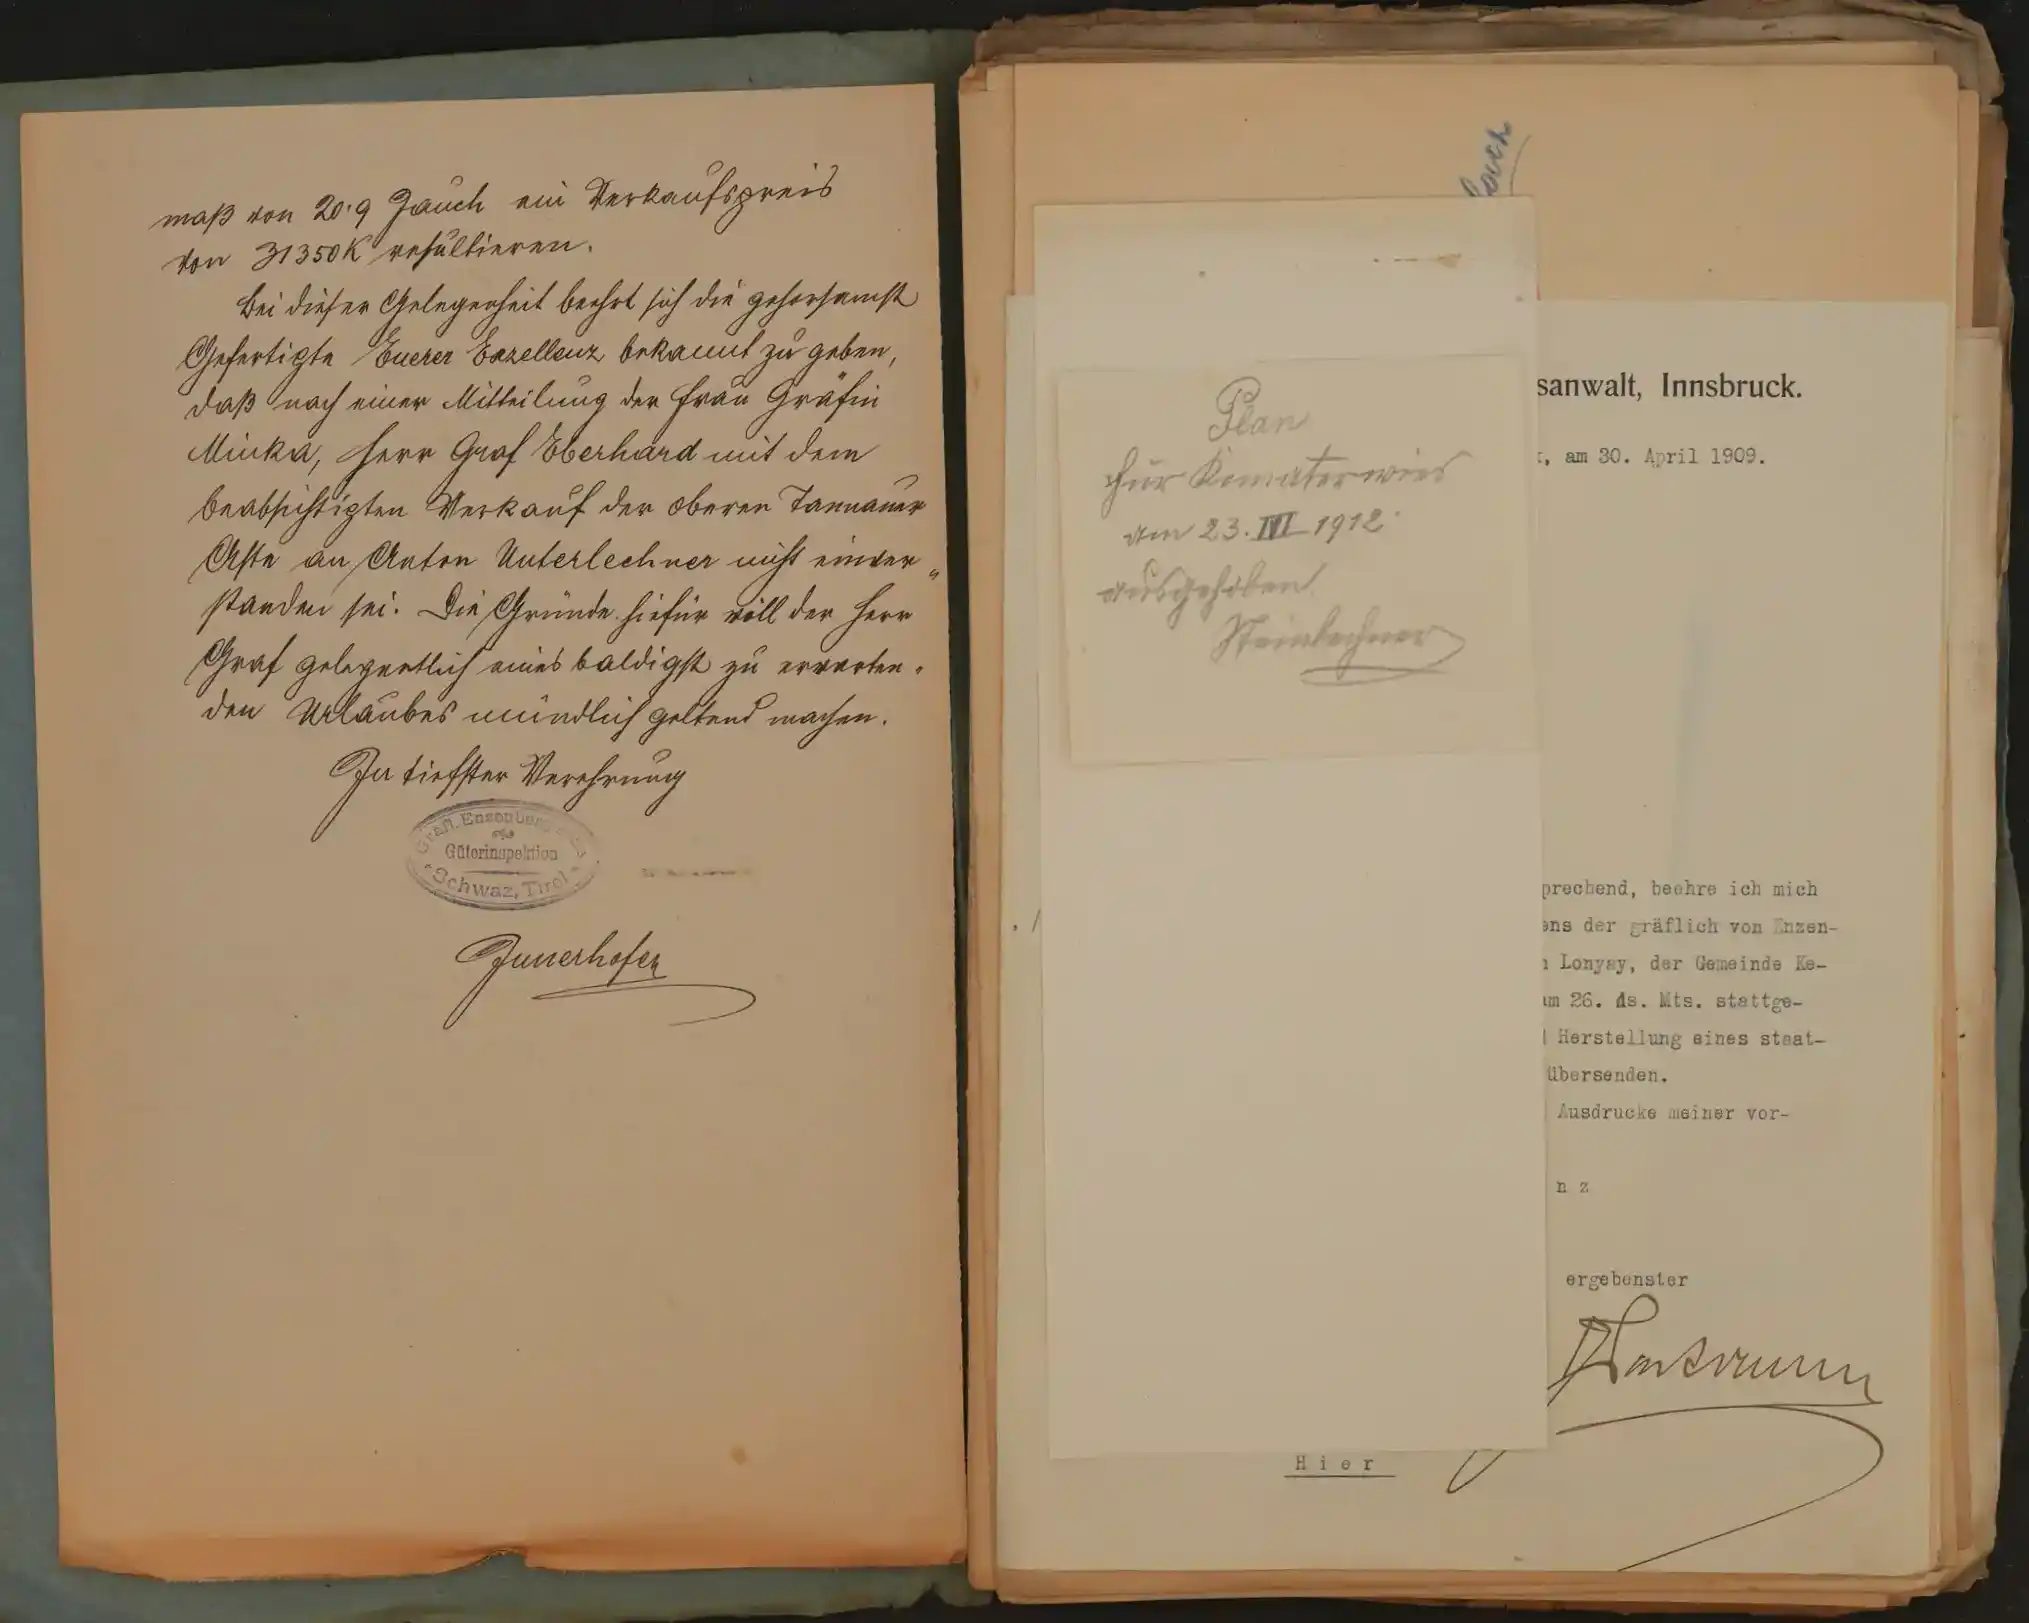 maß von 20·9 Jauch ein Verkaufspreis
von 31350K resultieren.
Bei dieser Gelegenheit beehrt sich die gehorsamst
Gefertigte Euerer Exzellenz bekannt zu geben,
daß nach einer Mitteilung der Frau Gräfin
Minka, Herr Graf Eberhard mit dem
beabsichtigten Verkauf der oberen Tannauer
Aste an Anton Unterlechner nicht einver„
standen sei. Die Gründe hiefür will der Herr
Graf gelegentlich eines baldigst zu erwarten-
den Urlaubes mündlich geltend machen.
In tiefster Verehrung
Gräfl. Enzenberg
Güterinspektion
Schwaz, Tirol
Innerhofer
Plan
für
am 23. IVI 1912
ausgehoben.
Steinlechner
sanwalt, Innsbruck.
, am 30. April 1909.
prechend, beehre ich mich
ens der gräflich von Enzen-
n Lonyay, der Gemeinde Ke-
am 26. ds. Mts. stattge-
Herstellung eines staat-
übersenden.
Ausdrucke meiner vor-
n z
ergebenster
Hier